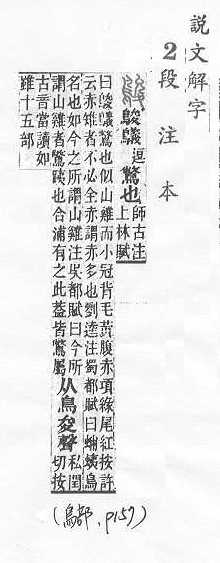 説文解字
2 段注本
鵔鸃逗鷩也師古注
上林賦
曰鵔鸃鷩也似山雞而小冠背毛黃腹赤項綠尾紅按許
云赤雉者不必全赤謂赤多也劉逵注蜀都賦曰蛦鳥
名也如今之所謂山雞注吳都賦曰今所
謂山雞者鷩蛦也合浦有之此蓋皆鷩屬
从鳥夋聲
私閏
切按
古音當讀如
雖十五部
(鳥部, p157)